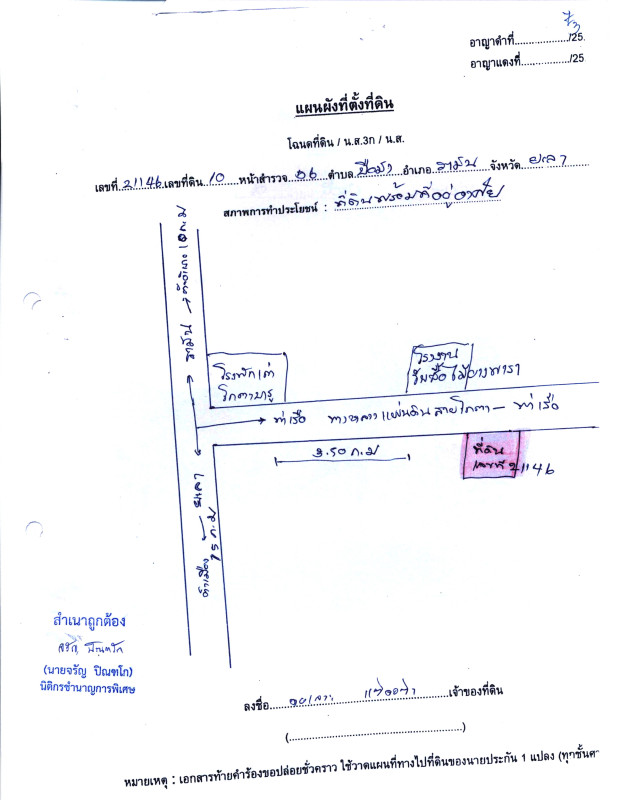 อาญาดำที่................../25.
อาญาแดงที่................/25
แผนผังที่ตั้งที่ดิน
โฉนดที่ดิน / น.ส.3ก / น.ส.
เลขที่ 21146 เลขที่ดิน 10 หน้าสำรวจ 56 ตำบล อำเภอ รามัน จังหวัด ยะลา
สภาพการทำประโยชน์ : ที่ดินพร้อมที่อยู่อาศัย
รามัน
โรงพักเก่า
โกตาบารู
โรงงาน
รับซื้อไม้ยางพารา
ท่าเรือ ทางหลวงแผ่นดินสายโกตา - ท่าเรือ
3.50 ก.ม
ที่ดิน
เลขที่ 21146
ตัวเมือง ยะลา
15 ก.ม
สำเนาถูกต้อง
(นายจรัญ ปิณฑโก)
นิติกรชำนาญการพิเศษ
ลงชื่อ เจ้าของที่ดิน
(..........................................................)
หมายเหตุ : เอกสารท้ายคำร้องขอปล่อยชั่วคราว ใช้วาดแผนที่ทางไปที่ดินของนายประกัน 1 แปลง (ทุกชั้นศ